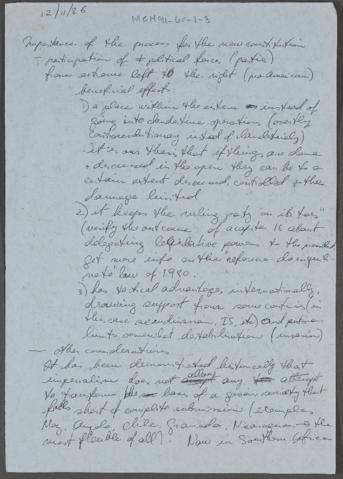 12/11/86
MCH91-60-1-3
Importance of the process for the new constitution
- participation of ≠ political forces (parties)
from extreme left to the right (pro american)
beneficial effects:
1) a place within the system instead of
going into clandestine operations (overtly
contrarevolutionary instead of clandestinely)
it is our thesis that if things are done
+ discussed in the open they can be to a
certain extent discussed, controlled + the
damage limited
2) it keeps the ruling party "on its toes"
(verify the outcome of chapter 15 about
delegating legislative powers to the president
get more info on the reforma
law of 1980.
3) has tactical advantage, internationally,
drawing support from some countries (in
this case scandinavian, IS, etc) and puts a
limit somewhat destabilization (invasion)
— other considerations
It has been demonstrated historically that
imperialism does not allow any attempt
to transform the base of a given society that
falls short of complete submission (examples
Moz, Angola, Chile, Granada, Nicaragua = the
most flexible of all? Now in Southern Africa